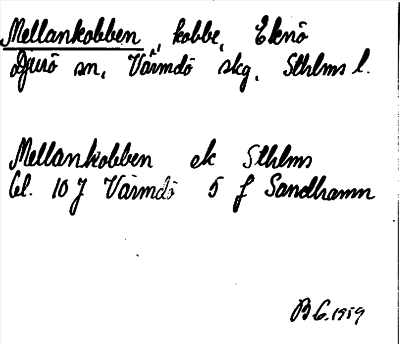 Mellankobben, kobbe, Eknö
Djurö sn, Värmdö skg, Sthlms l.
Mellankobben ek Sthlms
bl. 10 J Värmdö 5 f Sandhamn
B G. 1959